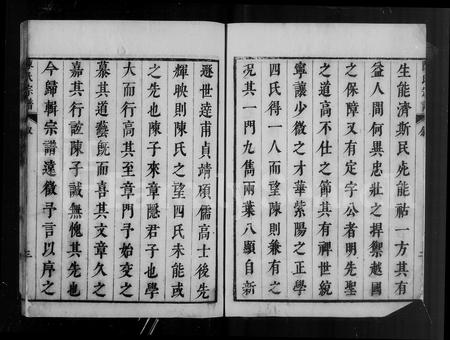 生能濟斯民死能祐一方其有
益人間何異忠壯之捍禦越國
之保障又有定宇公者明先聖
之道高不仕之節其有裨世統
寧讓少微之才華紫陽之正學
四氏得一人而望陳則兼有之
況其一門九雋兩葉八顯自新
遯世達甫貞靖碩儒高士後先
輝映則陳氏之望四氏未能或
之先也陳子來章隱君子也學
大而行高其至章門予始交之
慕其道藝既而喜其文章久之
嘉其行誼陳子誠無愧其先也
今歸輯宗譜遠徵予言以序之
陳氏宗譜
三